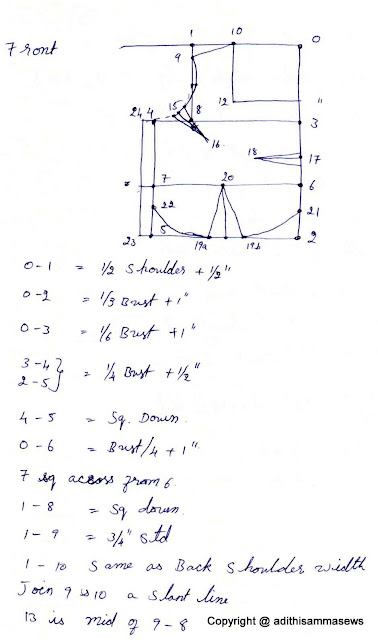 Front
1 10 0
9
12 11
24 4 15 8 3
16
18 17
7 20 6
22 21
23 5 19a 19b 2
0-1 = 1/2 Shoulder + 1/2"
0-2 = 1/3 Bust + 1"
0-3 = 1/6 Bust + 1"
3-4 }
2-5 } = 1/4 Bust + 1/2"
4-5 = Sq. Down.
0-6 = Bust/4 + 1".
7 sq across from 6.
1-8 = Sq down.
1-9 = 3/4" Std
1-10 Same as Back Shoulder width
Join 9 to 10 a Slant line
13 is mid of 9-8
Copyright @ adithisammasews